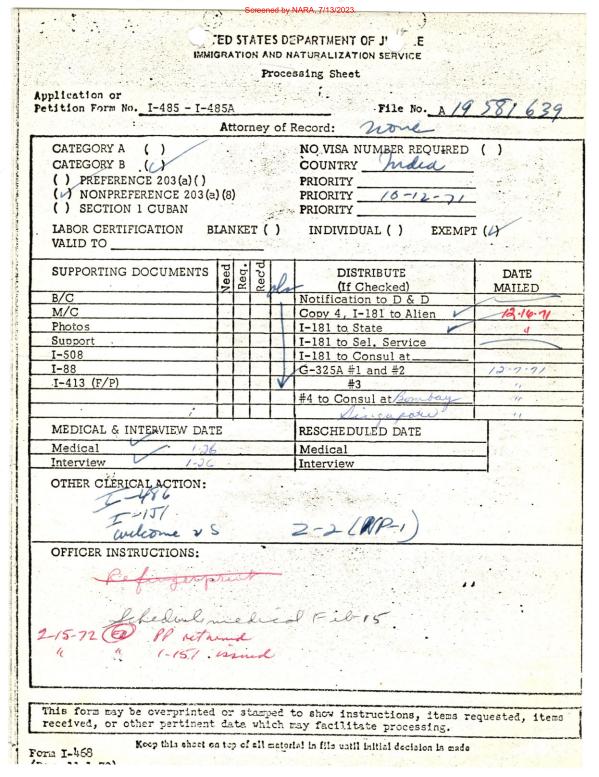 Screened by NARA, 7/13/2023.
TED STATES DEPARTMENT OF J E
IMMIGRATION AND NATURALIZATION SERVICE
Processing Sheet
Application or
Petition Form No. I-485 - I-485A File No. A 19 581 639
Attorney of Record: none
CATEGORY A ( ) NO VISA NUMBER REQUIRED ( )
CATEGORY B (✓) COUNTRY India
( ) PREFERENCE 203(a)( ) PRIORITY
(✓) NONPREFERENCE 203(a)(8) PRIORITY 10-12-71
( ) SECTION 1 CUBAN PRIORITY
LABOR CERTIFICATION BLANKET ( ) INDIVIDUAL ( ) EXEMPT (✓)
VALID TO
SUPPORTING DOCUMENTS Need Req. Rec'd DISTRIBUTE (If Checked) DATE MAILED
B/C Notification to D & D
M/C Copy 4, I-181 to Alien ✓ 12-16-71
Photos I-181 to State ✓ "
Support I-181 to Sel. Service
I-508 I-181 to Consul at
I-88 G-325A #1 and #2 12-7-71
I-413 (F/P) #3 "
#4 to Consul at Bombay "
Singapore "
MEDICAL & INTERVIEW DATE RESCHEDULED DATE
Medical 1-26 Medical
Interview 1-26 Interview
OTHER CLERICAL ACTION:
I-486
I-151
welcome US Z-2 (NP-1)
OFFICER INSTRUCTIONS:
Refingerprint
Schedule medical Feb-15
2-15-72 PP returned
" " I-151 issued
This form may be overprinted or stamped to show instructions, items requested, items
received, or other pertinent date which may facilitate processing.
Keep this sheet on top of all material in file until initial decision is made
Form I-468